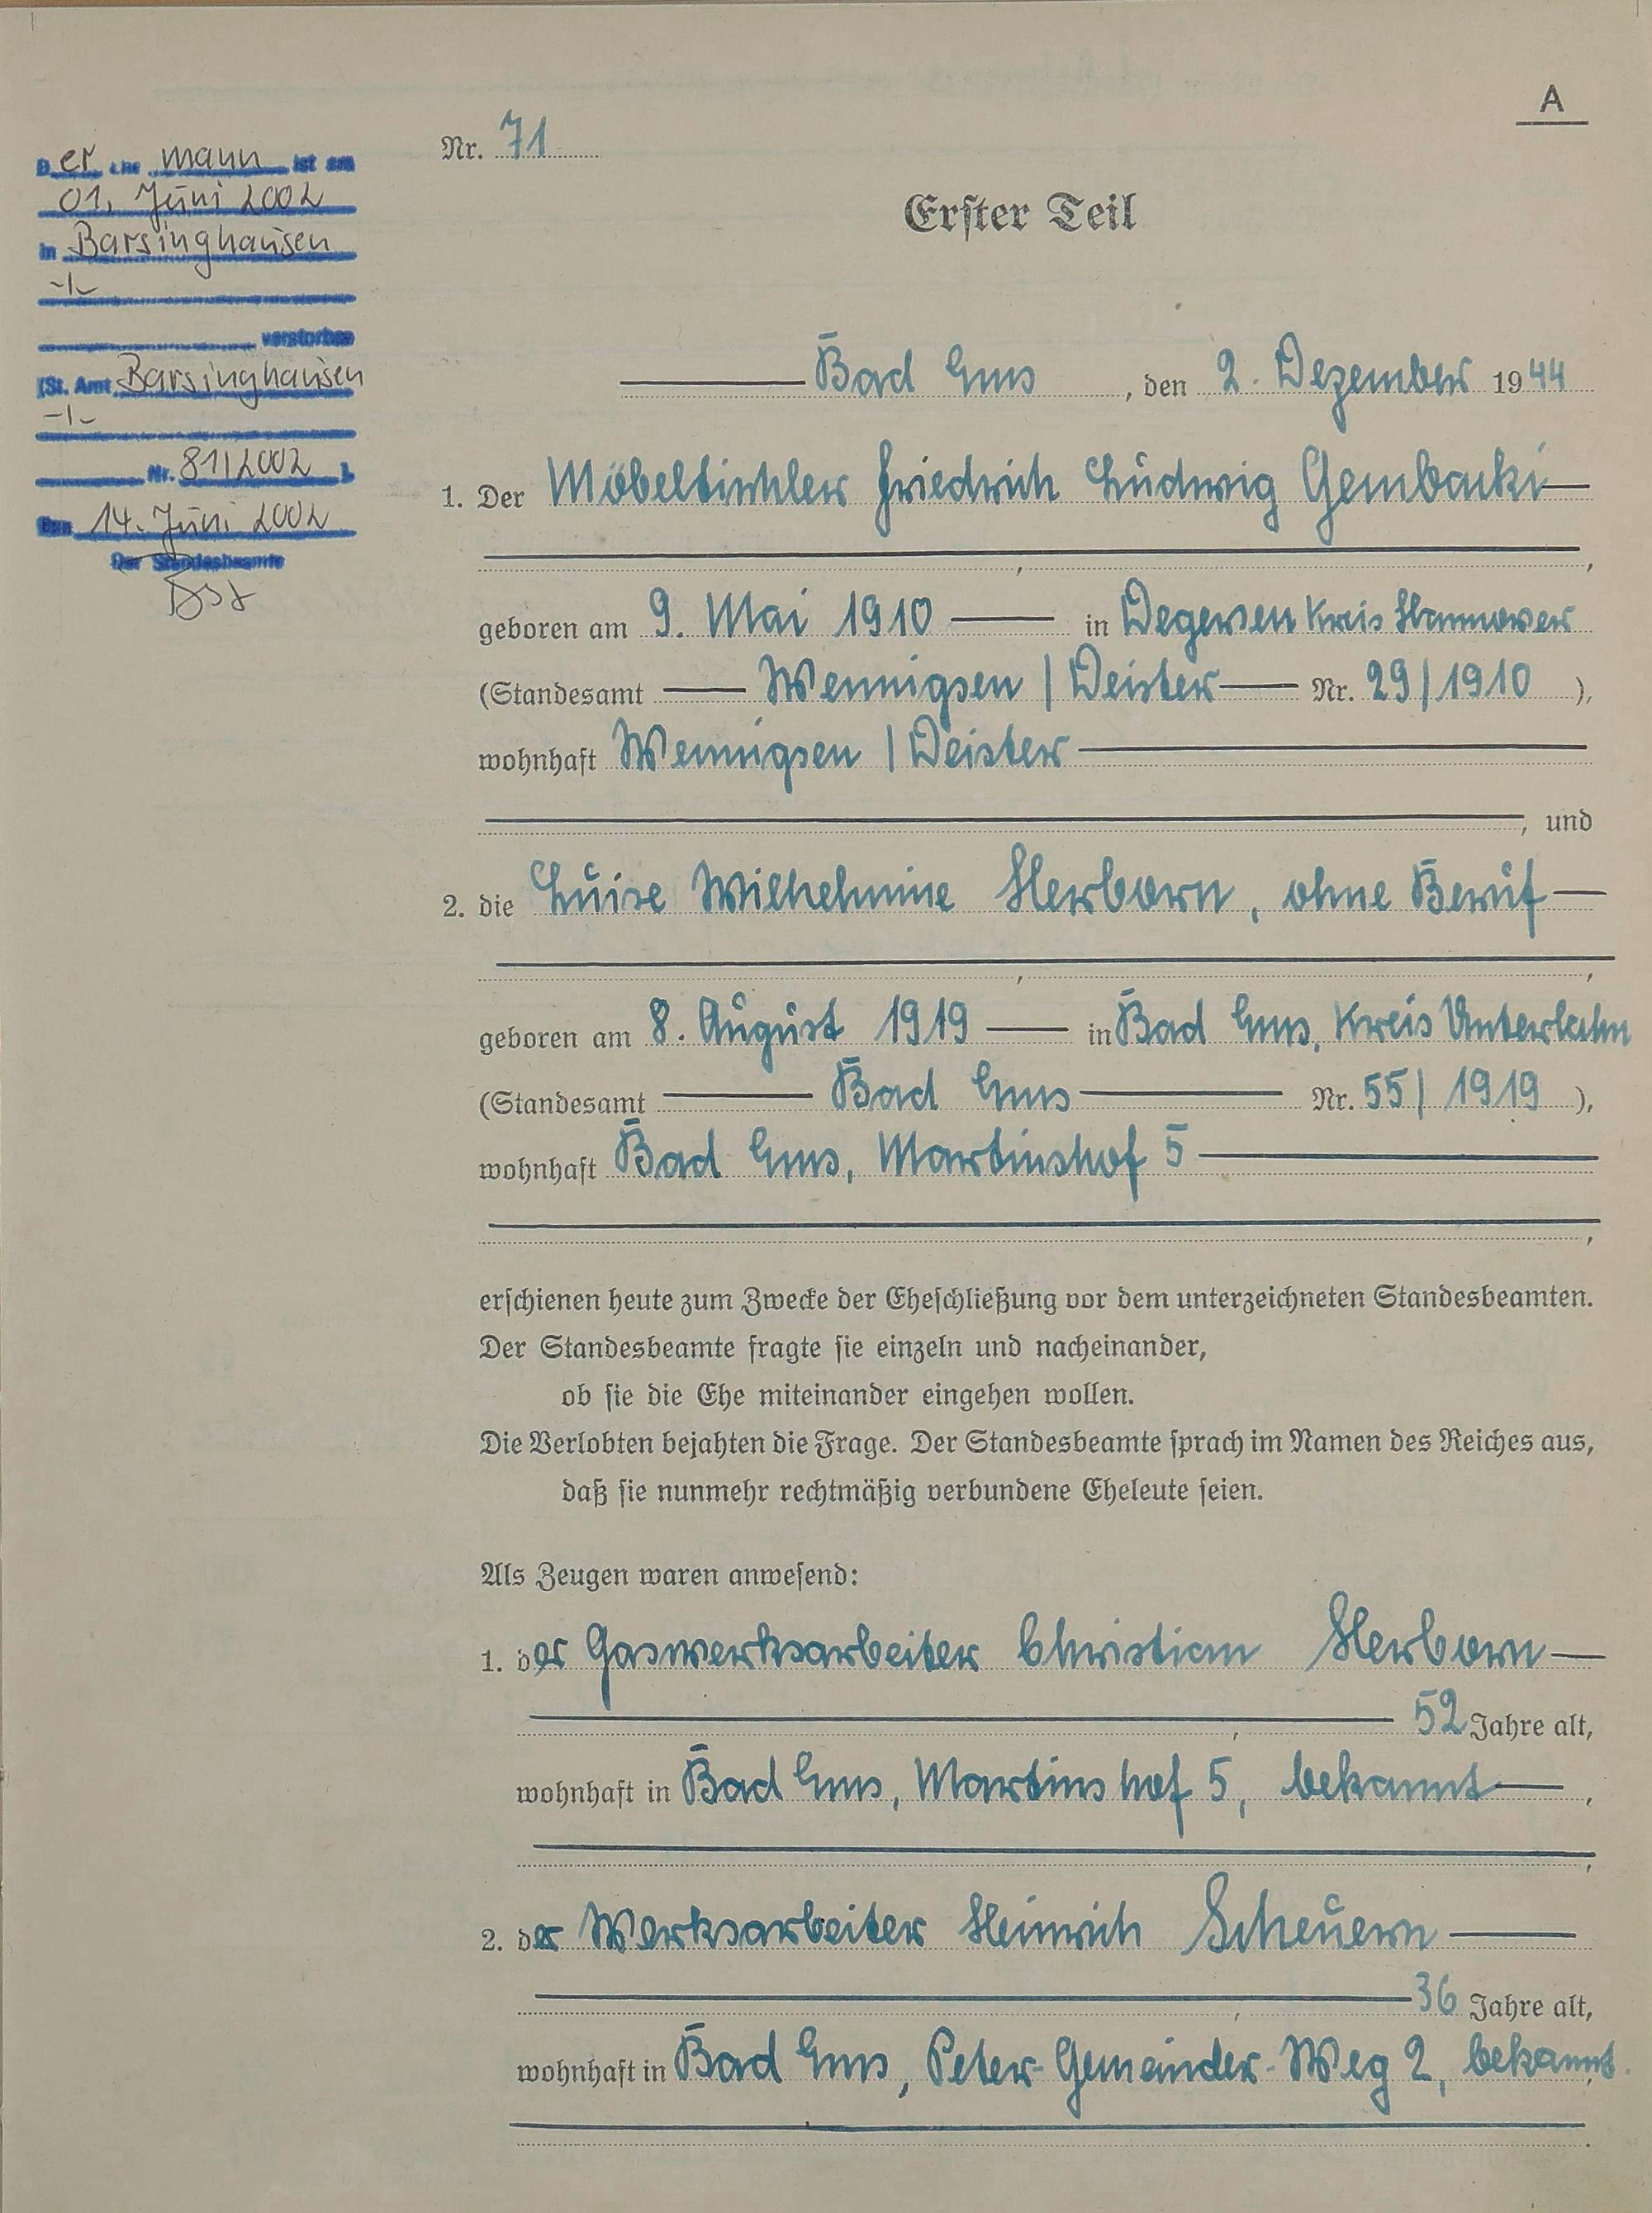 A
Nr. 71
Der Ehe mann ist am
01. Juni 2002
in Barsinghausen
-/-
verstorben
(St. Amt Barsinghausen
-/-
Nr. 81/2002 ).
Den 14. Juni 2002
Der Standesbeamte
Erster Teil
Bad Ems, den 2. Dezember 1944
1. Der Möbeltischler Friedrich Ludwig Gembacki
geboren am 9. Mai 1910 in Degersen Kreis Hannover
(Standesamt Wennigsen / Deister Nr. 29/1910 ),
wohnhaft Wennigsen / Deister
, und
2. die Luise Wilhelmine Herborn, ohne Beruf
geboren am 8. August 1919 in Bad Ems, Kreis Unterlahn
(Standesamt Bad Ems Nr. 55/1919 ),
wohnhaft Bad Ems, Martinshof 5
erschienen heute zum Zwecke der Eheschließung vor dem unterzeichneten Standesbeamten.
Der Standesbeamte fragte sie einzeln und nacheinander,
ob sie die Ehe miteinander eingehen wollen.
Die Verlobten bejahten die Frage. Der Standesbeamte sprach im Namen des Reiches aus,
daß sie nunmehr rechtmäßig verbundene Eheleute seien.
Als Zeugen waren anwesend:
1. der Gaswerksarbeiter Christian Herborn
52 Jahre alt,
wohnhaft in Bad Ems, Martinshof 5, bekannt,
2. der Werksarbeiter Heinrich Scheuern
36 Jahre alt,
wohnhaft in Bad Ems, Peter-Gemeinder-Weg 2, bekannt.